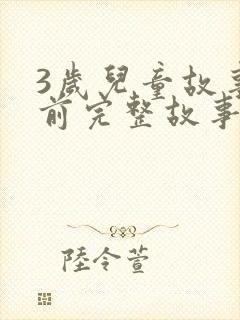 3歲兒童故事
前完整故事
陸令萱